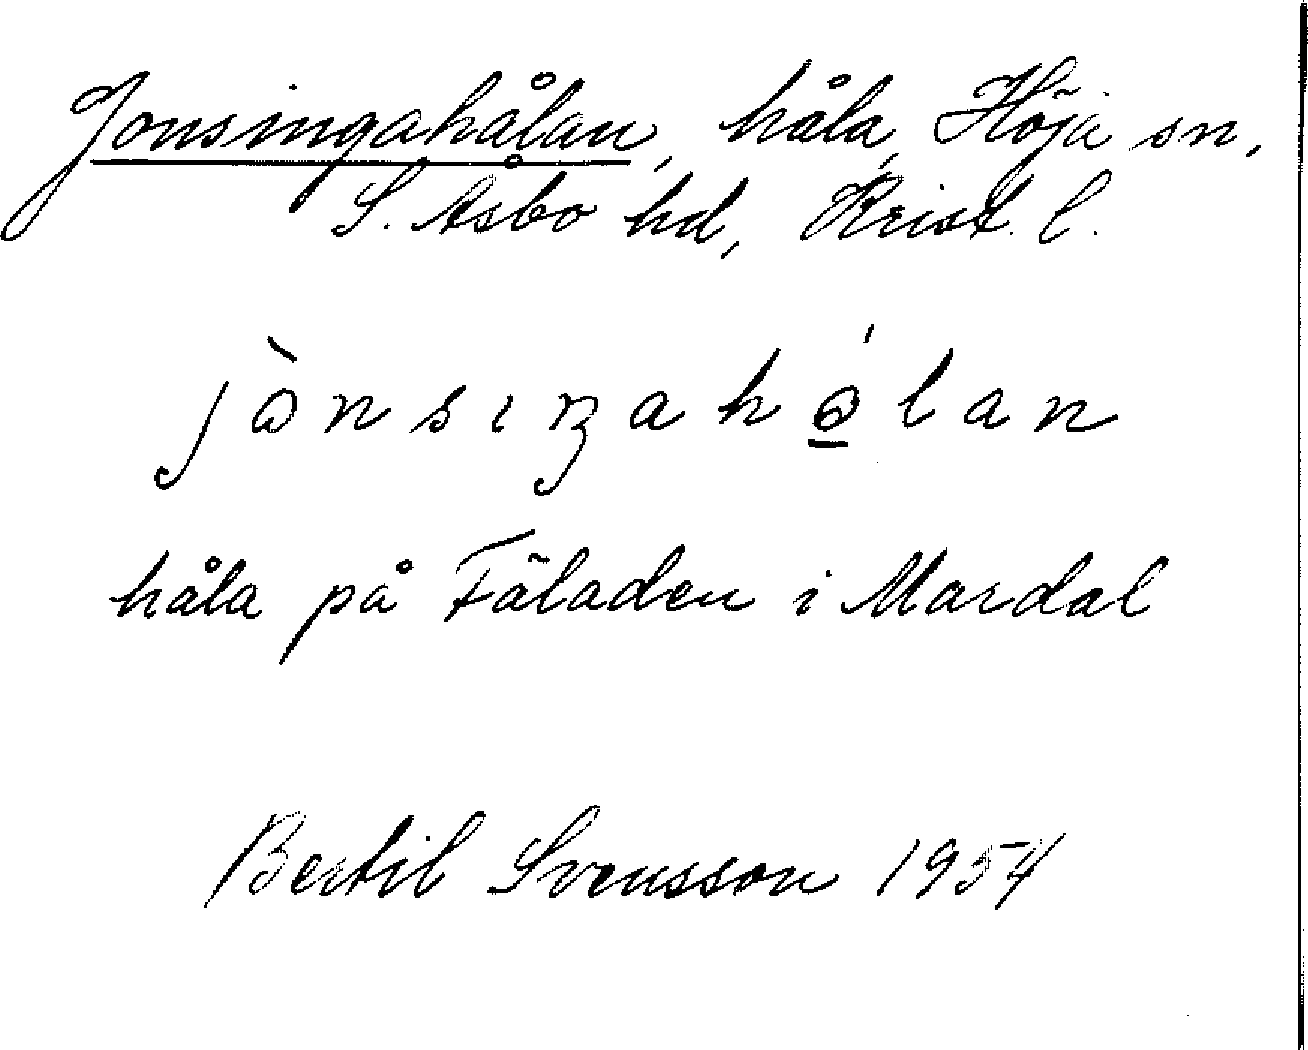 Jonsingahålan, håla, Höja sn,
S. Åsbo hd, Krist. l.
jɷ̀nsıŋahɷ̲́lan
håla på Fäladen i Mardal
Bertil Svensson 1954